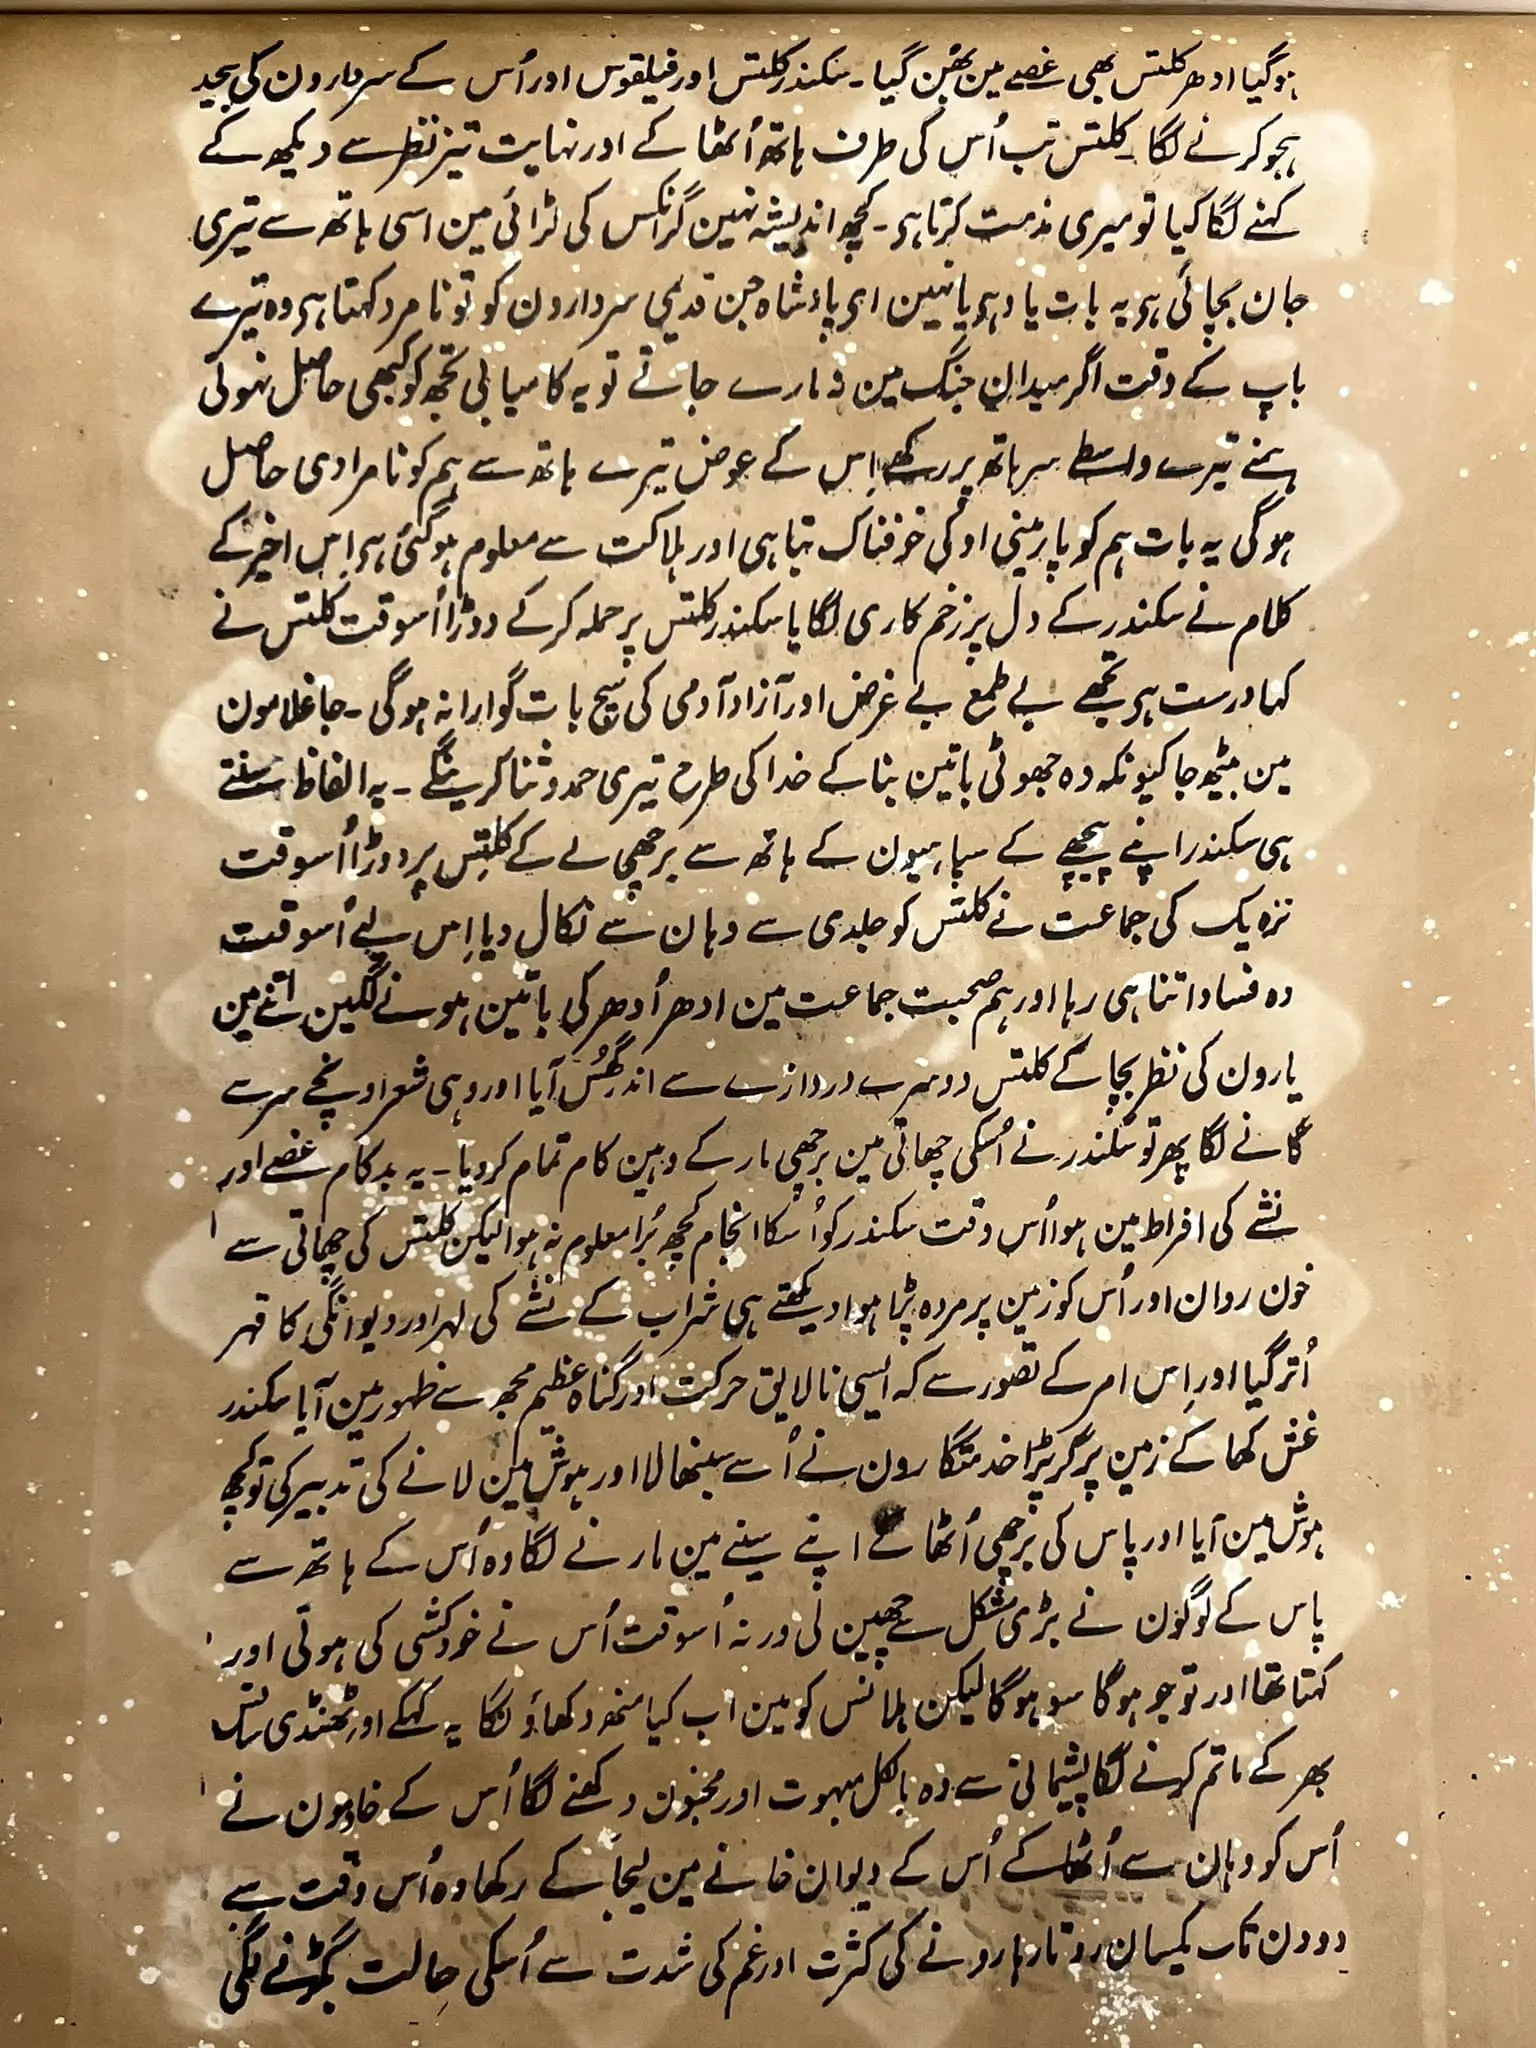 ہوگیا ادھر کلتس بھی غصے مین بھن گیا۔ سکندر کلتس اور فیلقوس اور اُس کے سردارون کی بیحد
ہجو کرنے لگا۔ کلتس تب اُس کی طرف ہاتھ اُٹھا کے اور نہایت تیز نظر سے دیکھ کے
کہنے لگا کیا تو میری مذمت کرتا ہی۔ کچھ اندیشہ نہین گرانکس کی لڑائی مین اسی ہاتھ سے تیری
جان بچائی ہی یہ بات یاد ہی یا نہین ای پادشاہ جن قدیمی سردارون کو تو نامرد کہتا ہی وہ تیرے
باپ کے وقت اگر میدان جنگ مین نہ مارے جاتے تو یہ کامیابی تجھ کو کبھی حاصل نہوتی
ہمنے تیرے واسطے سر ہاتھ پر رکھے اِس کے عوض تیرے ہاتھ سے ہم کو نامرادی حاصل
ہوگی یہ بات ہم کو پارمینی او کی خوفناک تباہی اور ہلاکت سے معلوم ہوگئی ہی اِس اخیر کے
کلام نے سکندر کے دل پر زخم کاری لگایا سکندر کلتس پر حملہ کرکے دوڑا اُسوقت کلتس نے
کہا درست ہی تجھے بے طمع بے غرض اور آزاد آدمی کی سچ بات گوارا نہ ہوگی۔ جا غلامون
مین بیٹھ جا کیونکہ وہ جھوٹی باتین بنا کے خدا کی طرح تیری حمد و ثنا کرینگے۔ یہ الفاظ سنتے
ہی سکندر اپنے پیچھے کے سپاہیون کے ہاتھ سے برچھی لے کے کلتس پر دوڑا اُسوقت
نزدیک کی جماعت نے کلتس کو جلدی سے وہان سے نکال دیا اِس لیے اُسوقت
وہ فساد اتنا ہی رہا اور ہم صحبت جماعت مین ادھر اُدھر کی باتین ہونے لگین اتنے مین
یارون کی نظر بچا کے کلتس دوسرے دروازے سے اندر گھُس آیا اور وہی شعر اونچے سر سے
گانے لگا پھر تو سکندر نے اُسکی چھاتی مین برچھی مار کے وہین کام تمام کردیا۔ یہ بدکام غصے اور
نشے کی افراط مین ہوا اُس وقت سکندر کو اُسکا انجام کچھ بُرا معلوم نہ ہوا لیکن کلتس کی چھاتی سے
خون روان اور اُس کو زمین پر مردہ پڑا ہوا دیکھتے ہی شراب کے نشے کی لہر اور دیوانگی کا قہر
اُتر گیا اور اِس امر کے تصور سے کہ ایسی نالایق حرکت اور گناہ عظیم مجھ سے ظہور مین آیا سکندر
غش کھا کے زمین پر گر پڑا خدمتگارون نے اُسے سنبھالا اور ہوش مین لانے کی تدبیر کی تو کچھ
ہوش مین آیا اور پاس کی برچھی اُٹھا کے اپنے سینے مین مارنے لگا وہ اُس کے ہاتھ سے
پاس کے لوگون نے بڑی مشکل سے چھین لی ورنہ اُسوقت اُس نے خودکشی کی ہوتی اور
کہتا تھا اور تو جو ہوگا سو ہوگا لیکن ہلانس کو مین اب کیا منھ دکھاؤنگا یہ کہکے اور ٹھنڈی سانس
بھر کے ماتم کرنے لگا پشیمانی سے وہ بالکل مبہوت اور مجنون دکھنے لگا اُس کے خادمون نے
اُس کو وہان سے اُٹھا کے اُس کے دیوان خانے مین لیجا کے رکھا وہ اُس وقت سے
دو دن تک یکسان روتا رہا رونے کی کثرت اور غم کی شدت سے اُسکی حالت بگڑنے لگی